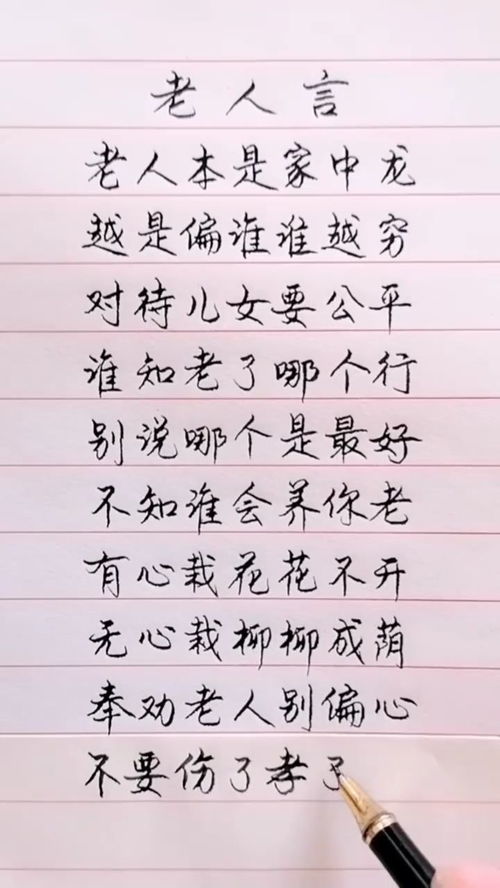 老人言
老人本是家中龙
越是偏谁谁越穷
对待儿女要公平
谁知老了哪个行
别说哪个是最好
不知谁会养你老
有心栽花花不开
无心栽柳柳成荫
奉劝老人别偏心
不要伤了孝子